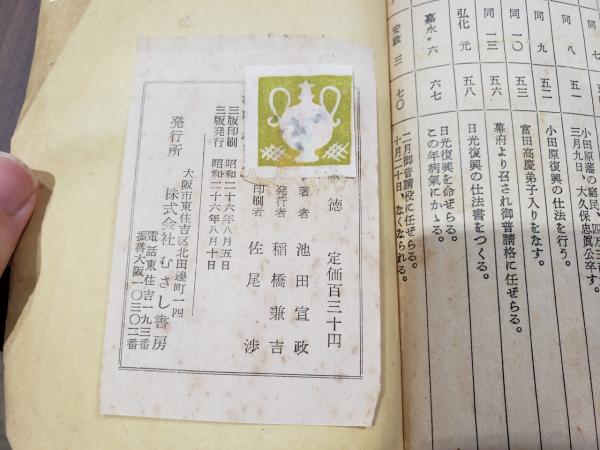 同 八 五一
小田原藩の窮民、四万三
三月九日、大久保忠眞公卒す。
同 九 五二
小田原復興の仕法を行う。
同 一〇 五三
富田高慶弟子入りをなす。
同 一三 五六
幕府より召され御普請格に任ぜらる。
弘化 元 五八
日光復興の仕法書をつくる。
嘉永 六 六七
日光復興を命ぜらる。
この年病氣にかゝる。
安政 三 七〇
二月御普請役に任ぜらる。
十月二十日、なくなられる。
徳
定価百三十円
著者 池田宣政
発行者 稲橋兼吉
印刷者 佐尾渉
三版印刷 昭和二十六年八月五日
三版発行 昭和二十六年八月十日
発行所
大阪市東住吉区北田邊町一四
株式会社むさし書房
電話東住吉一九三番
振替大阪一〇三〇二番